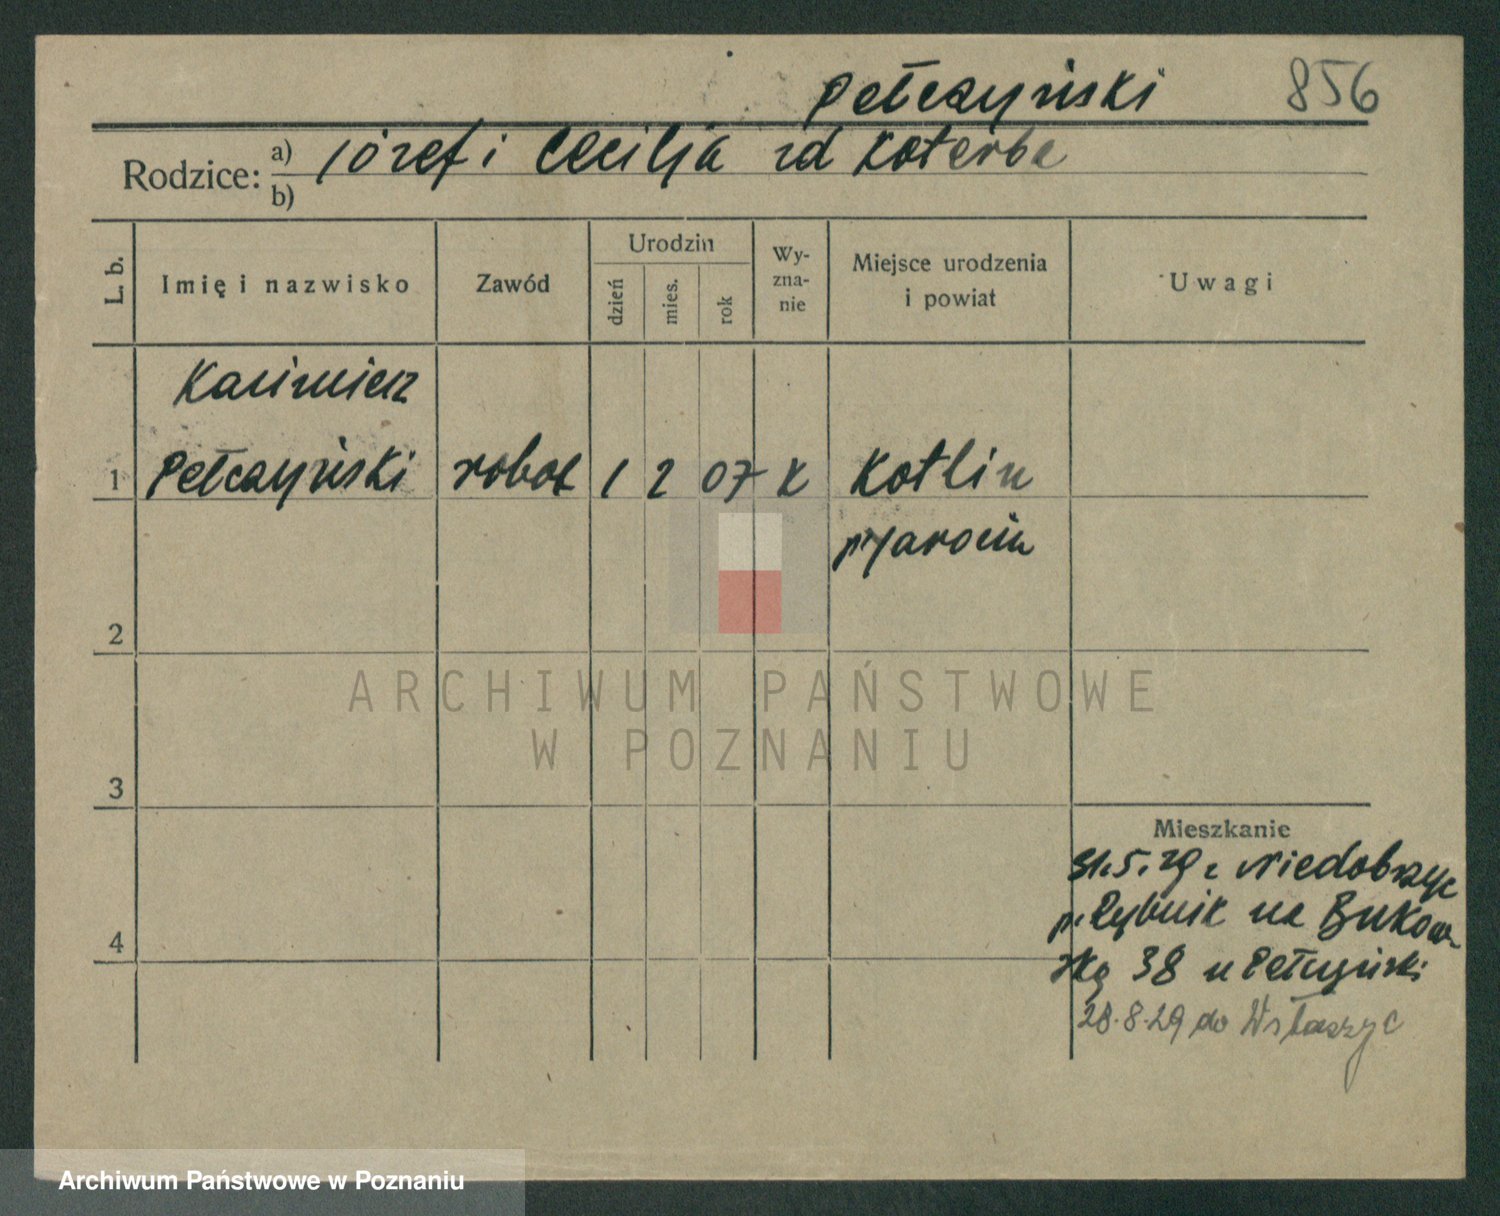 Pełczyński 856
Rodzice: a) Józef i Cecilja zd Koterba
b)
L. b. Imię i nazwisko Zawód Urodzin dzień mies. rok Wy-zna-nie Miejsce urodzenia i powiat Uwagi
Kazimierz
1 Pełczyński robot 1 2 07 K Kotlin
p. Jarocin
2
ARCHIWUM PAŃSTWOWE
W POZNANIU
3
Mieszkanie
31.5.29 z Niedobrzyc
p. Rybnik na Bukow
ską 38 u Pełczyński
4
28.8.29 do
Archiwum Państwowe w Poznaniu